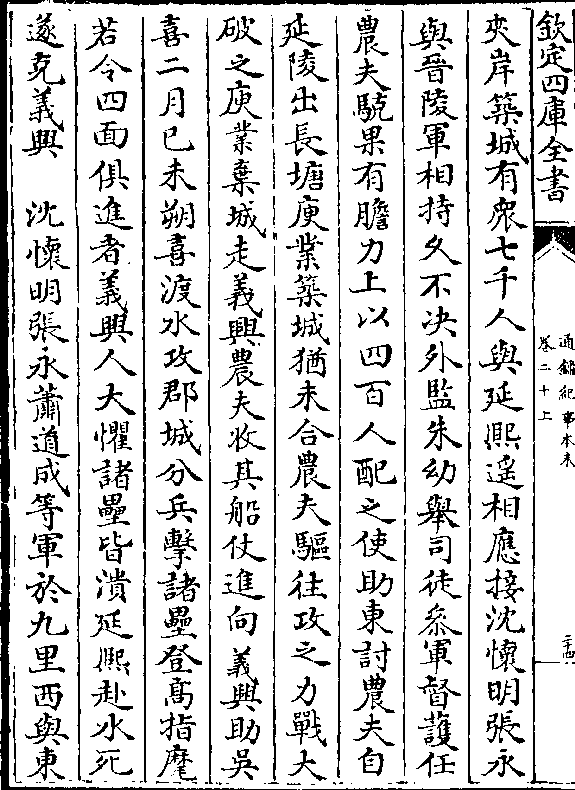 欽定四庫全書
通鑑紀事本末
卷二十上
二十四
夾岸築城有衆七千人與延熙遥相應接沈懷明張永
與晉陵軍相持久不決外監朱幼舉司徒叅軍督護任
農夫驍果有膽力上以四百人配之使助東討農夫自
延陵出長塘庾業築城猶未合農夫驅往攻之力戰大
破之庾業棄城走義興農夫收其船仗進向義興助吳
喜二月己未朔喜渡水攻郡城分兵擊諸壘登髙指麾
若令四面俱進者義興人大懼諸壘皆潰延熙赴水死
遂克義興　沈懷明張永蕭道成等軍於九里西與東